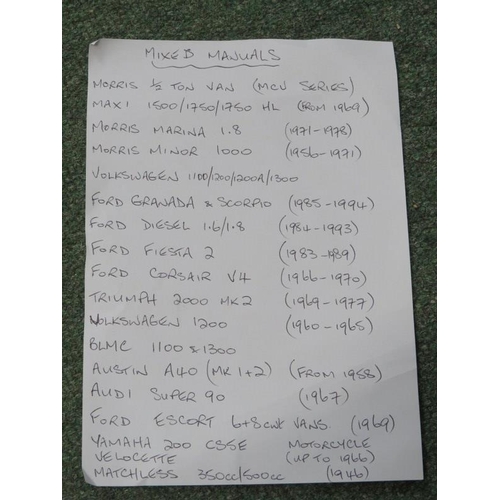 MIXED MANUALS
MORRIS ½ TON VAN (MCV SERIES)
MAXI 1500/1750/1750 HL (FROM 1969)
MORRIS MARINA 1.8 (1971-1978)
MORRIS MINOR 1000 (1956-1971)
VOLKSWAGEN 1100/1200/1200A/1300
FORD GRANADA & SCORPIO (1985-1994)
FORD DIESEL 1.6/1.8 (1984-1993)
FORD FIESTA 2 (1983-1989)
FORD CORSAIR V4 (1966-1970)
TRIUMPH 2000 MK2 (1969-1977)
VOLKSWAGEN 1200 (1960-1965)
BLMC 1100 & 1300
AUSTIN A40 (MK 1+2) (FROM 1958)
AUDI SUPER 90 (1967)
FORD ESCORT 6+8 cwt VANS. (1969)
YAMAHA 200 CSSE MOTORCYCLE
VELOCETTE (UP TO 1966)
MATCHLESS 350cc/500cc (1946)